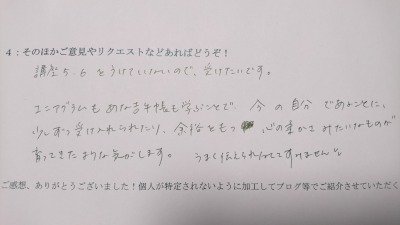 4:そのほかご意見やリクエストなどあればどうぞ!
講座5.6をうけていないので、受けたいです。
エニアグラムもあな吉手帳も学ぶことで、今の自分であることに、
少しずつ受け入れられたり、余裕をもつ 心の豊かさみたいなものが
育ってきたような気がします。 うまく伝えられなくてすみません
ご感想、ありがとうございました!個人が特定されないように加工してブログ等でご紹介させていただく